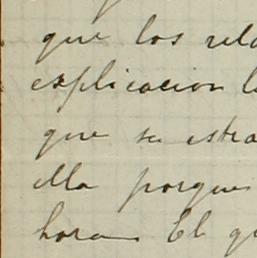 que los relo
explicacion l
que se estra
ella porque
hora El q